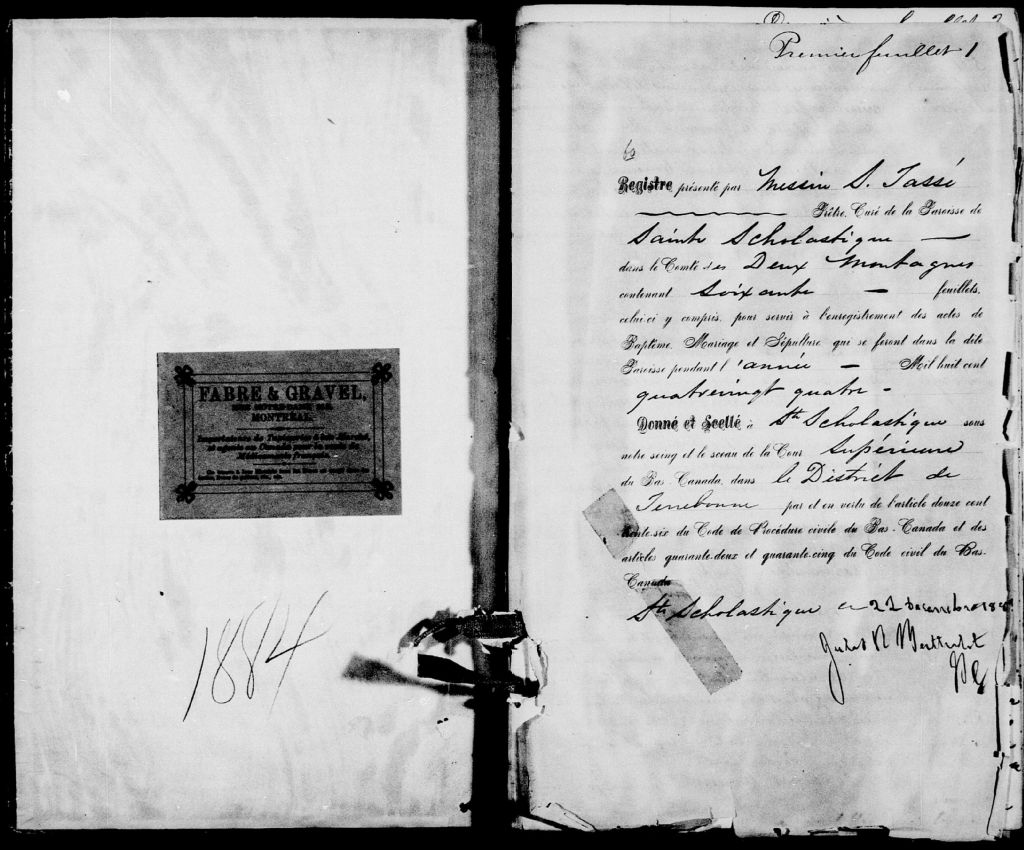 FABRE & GRAVEL,
MONTREAL.
1884
Premier feuillet 1
Registre présenté par Messire S. Tassé
Prêtre, Curé de la Paroisse de
Sainte Scholastique —
dans le Comté des Deux Montagnes
contenant Soixante — feuillets,
celui-ci y compris, pour servir à l'enregistrement des actes de
Baptême, Mariage et Sépulture, qui se feront dans la dite
Paroisse pendant l'année — Mil huit cent
quatrevingt quatre -
Donné et Scellé à Ste Scholastique sous
notre seing et le sceau de la Cour Supérieure
du Bas-Canada, dans le District de
Terrebonne par et en vertu de l'article douze cent
trente-six du Code de Procédure civile du Bas-Canada et des
articles quarante-deux et quarante-cinq du Code civil du Bas-
Canada
Ste Scholastique